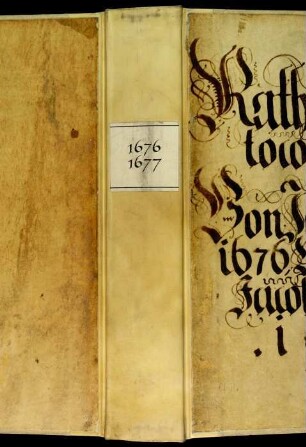 1676
1677
Rath
toco
Von J
1676
Jacob
. 1 .